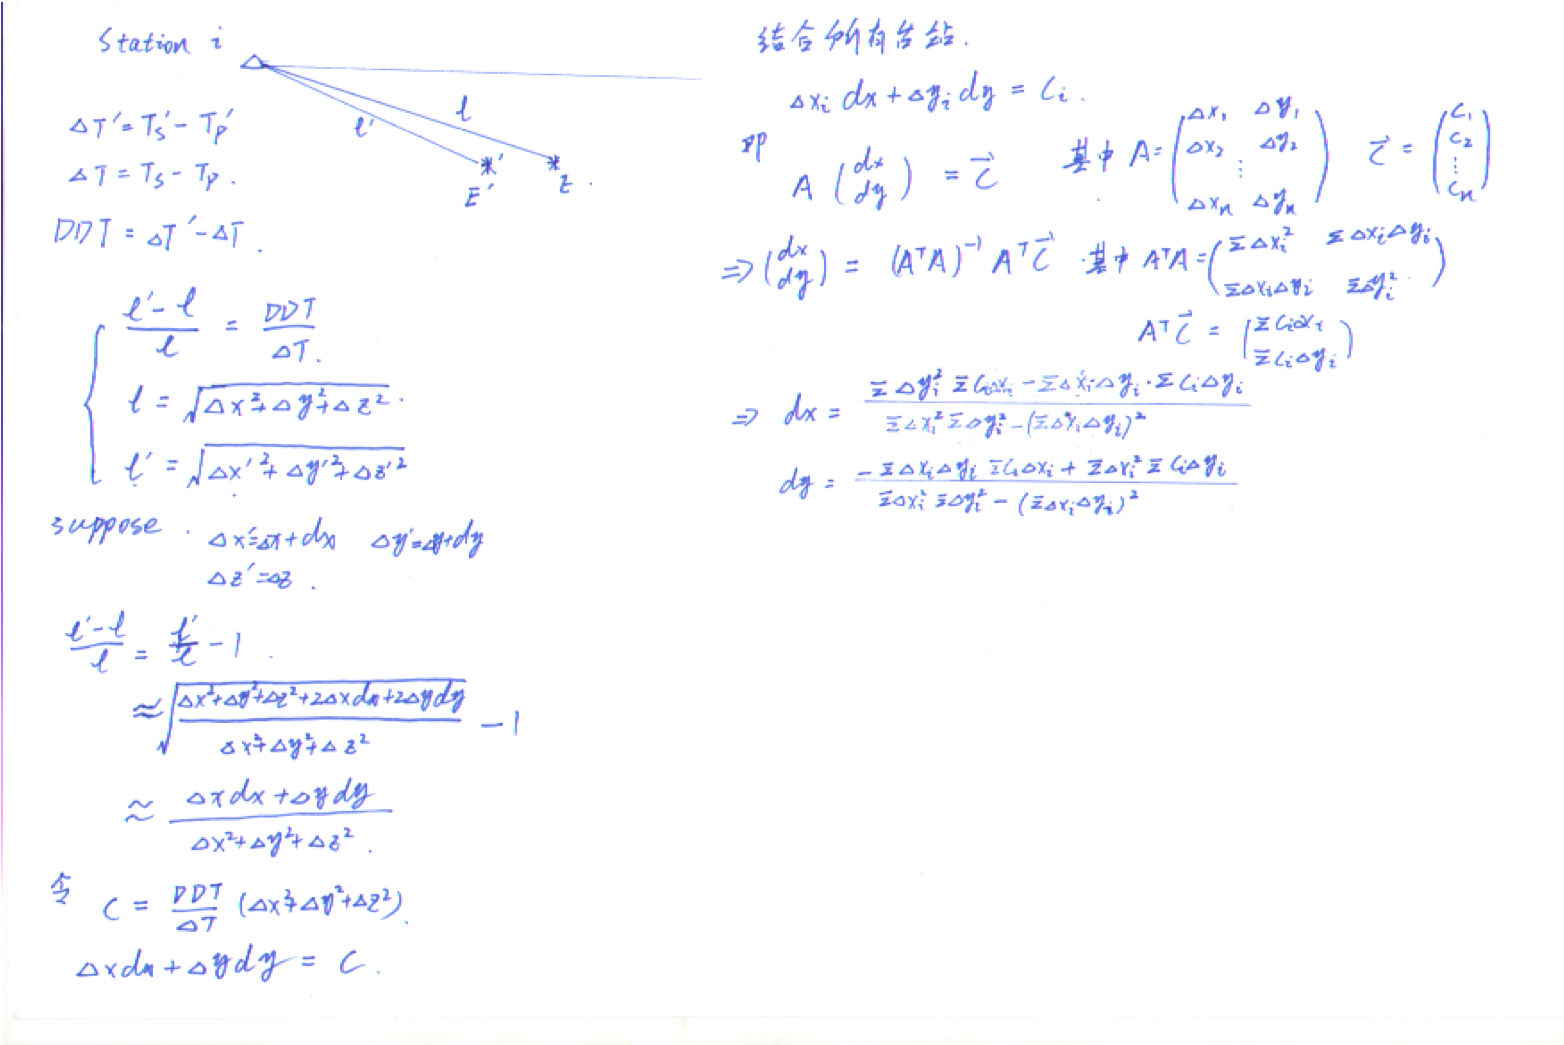 Station i
l
l'
E'
E.
ΔT' = Ts' - Tp'
ΔT = Ts - Tp.
DDT = ΔT' - ΔT.
(l' - l)/l = DDT/ΔT.
l = √(Δx²+Δy²+Δz²).
l' = √(Δx'²+Δy'²+Δz'²)
suppose. Δx'=Δx+dx Δy'=Δy+dy
Δz'=Δz.
(l'-l)/l = l'/l - 1.
≈ √((Δx²+Δy²+Δz²+2Δxdx+2Δydy)/(Δx²+Δy²+Δz²)) - 1
≈ (Δxdx+Δydy)/(Δx²+Δy²+Δz²).
令 C = DDT/ΔT (Δx²+Δy²+Δz²).
Δxdx+Δydy = C.
结合所有台站.
Δxi dx+Δyi dy = Ci.
即 A (dx dy) = C⃗ 其中 A = (Δx₁ Δy₁ Δx₂ Δy₂ ⋮ Δxn Δyn) C⃗ = (C₁ C₂ ⋮ Cn)
⇒ (dx dy) = (AᵀA)⁻¹ AᵀC⃗ 其中 AᵀA = (ΣΔxi² ΣΔxiΔyi ΣΔxiΔyi ΣΔyi²)
AᵀC⃗ = (ΣCiΔxi ΣCiΔyi)
⇒ dx = (ΣΔyi² ΣCiΔxi - ΣΔxiΔyi·ΣCiΔyi)/(ΣΔxi²ΣΔyi² - (ΣΔxiΔyi)²)
dy = (-ΣΔxiΔyi ΣCiΔxi + ΣΔxi² ΣCiΔyi)/(ΣΔxi² ΣΔyi² - (ΣΔxiΔyi)²)